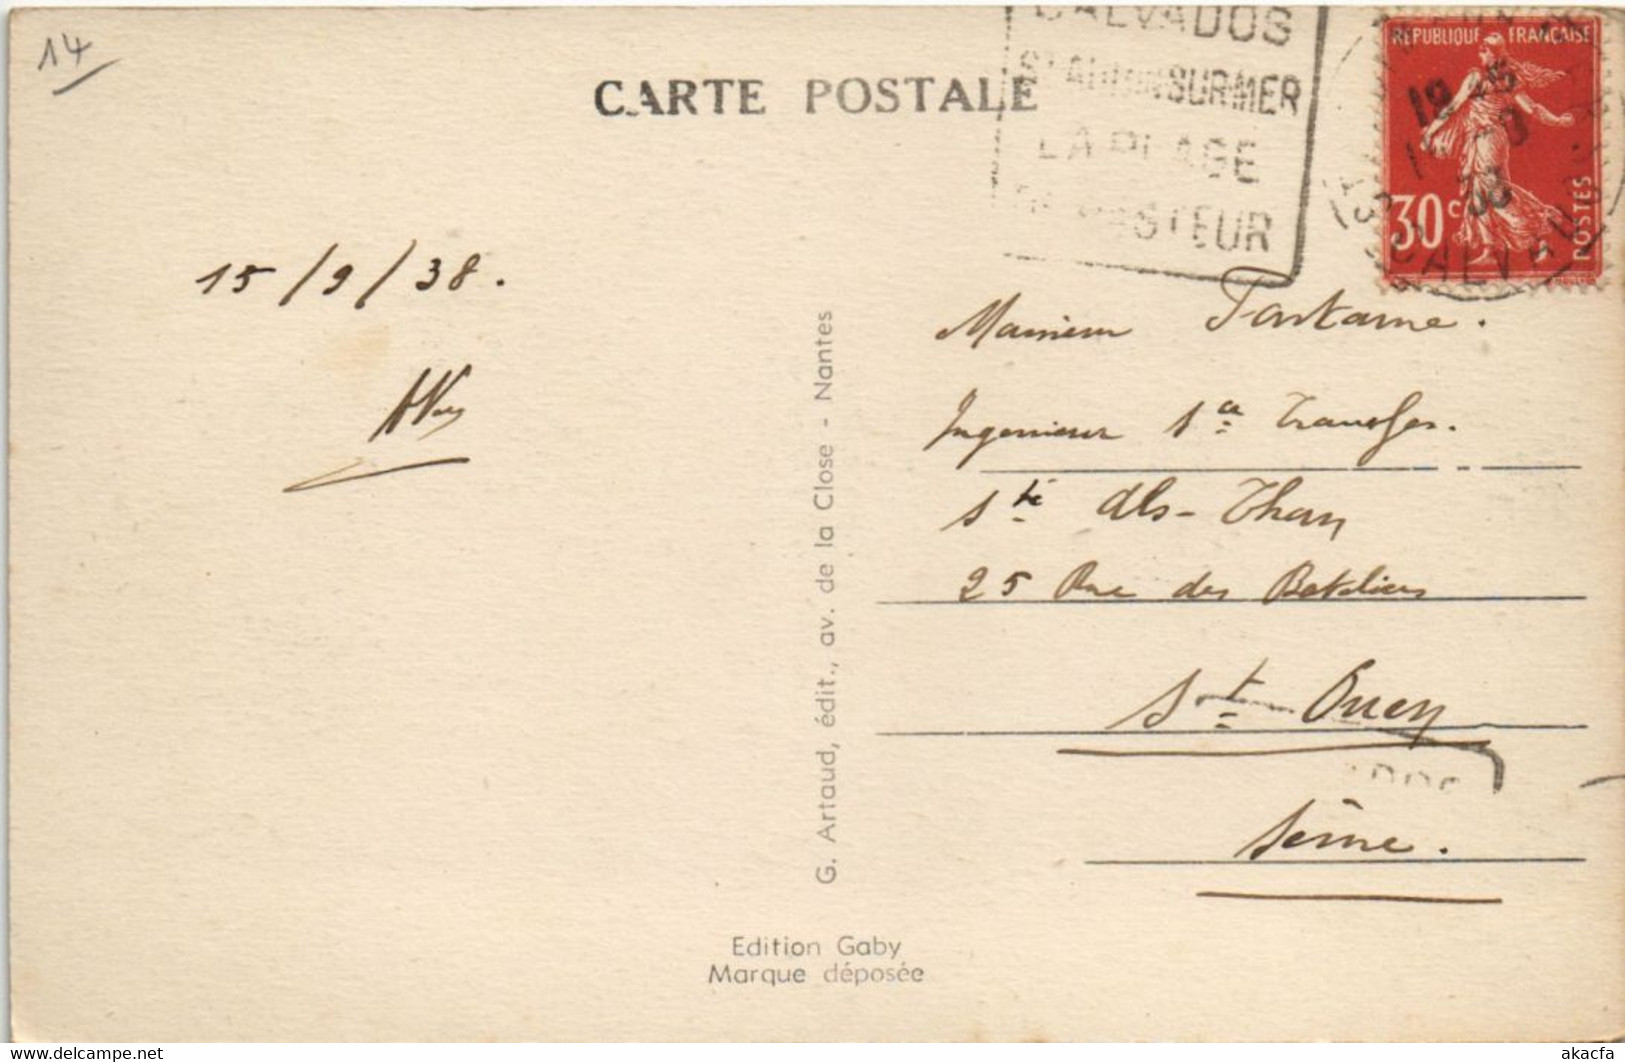 14
CARTE POSTALE
CALVADOS
ST AUBIN SUR MER
LA PLAGE
PASTEUR
REPUBLIQUE FRANÇAISE
30c
POSTES
CALVADOS
15/9/38.
Monsieur Fontaine.
Ingenieur Transfor.
Sté Als-Thom
25 Rue des Bateliers
St Ouen
Seine.
G. Artaud, édit., av. de la Close - Nantes
Edition Gaby
Marque déposée
delcampe.net
akacfa